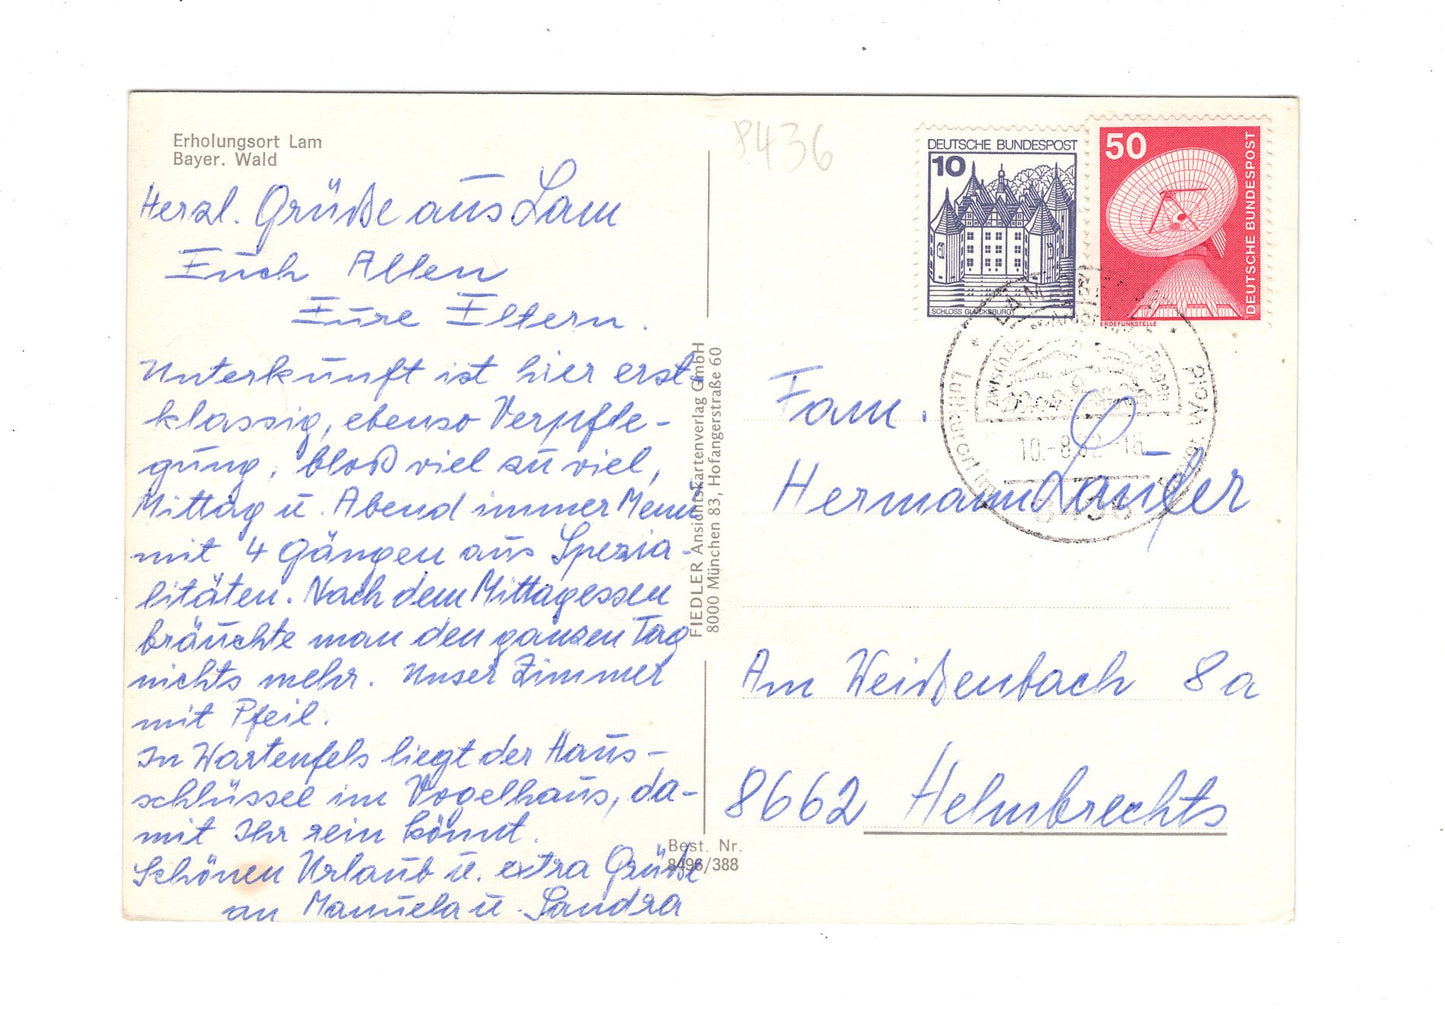 Erholungsort Lam
Bayer. Wald
Herzl. Grüße aus Lam
Euch Allen
Eure Eltern.
Unterkunft ist hier erst-
klassig, ebenso Verpfle-
gung, bloß viel zu viel,
Mittag u. Abend immer Menü
mit 4 Gängen aus Spezia-
litäten. Nach dem Mittagessen
bräuchte man den ganzen Tag
nichts mehr. Unser Zimmer
mit Pfeil.
In Wartenfels liegt der Haus-
schlüssel im Vogelhaus, da-
mit Ihr rein könnt.
Schönen Urlaub u. extra Grüße
an Manuela u. Sandra
FIEDLER Ansichtskartenverlag GmbH
8000 München 83, Hofangerstraße 60
Best. Nr.
8496/388
8436
DEUTSCHE BUNDESPOST
10
SCHLOSS GLÜCKSBURG
50
DEUTSCHE BUNDESPOST
ERDEFUNKSTELLE
LAM
Luftkurort im
Wald
10.-8.82-16
8436
Fam.
Hermann Langer
Am Weißenbach 8a
8662 Helmbrechts